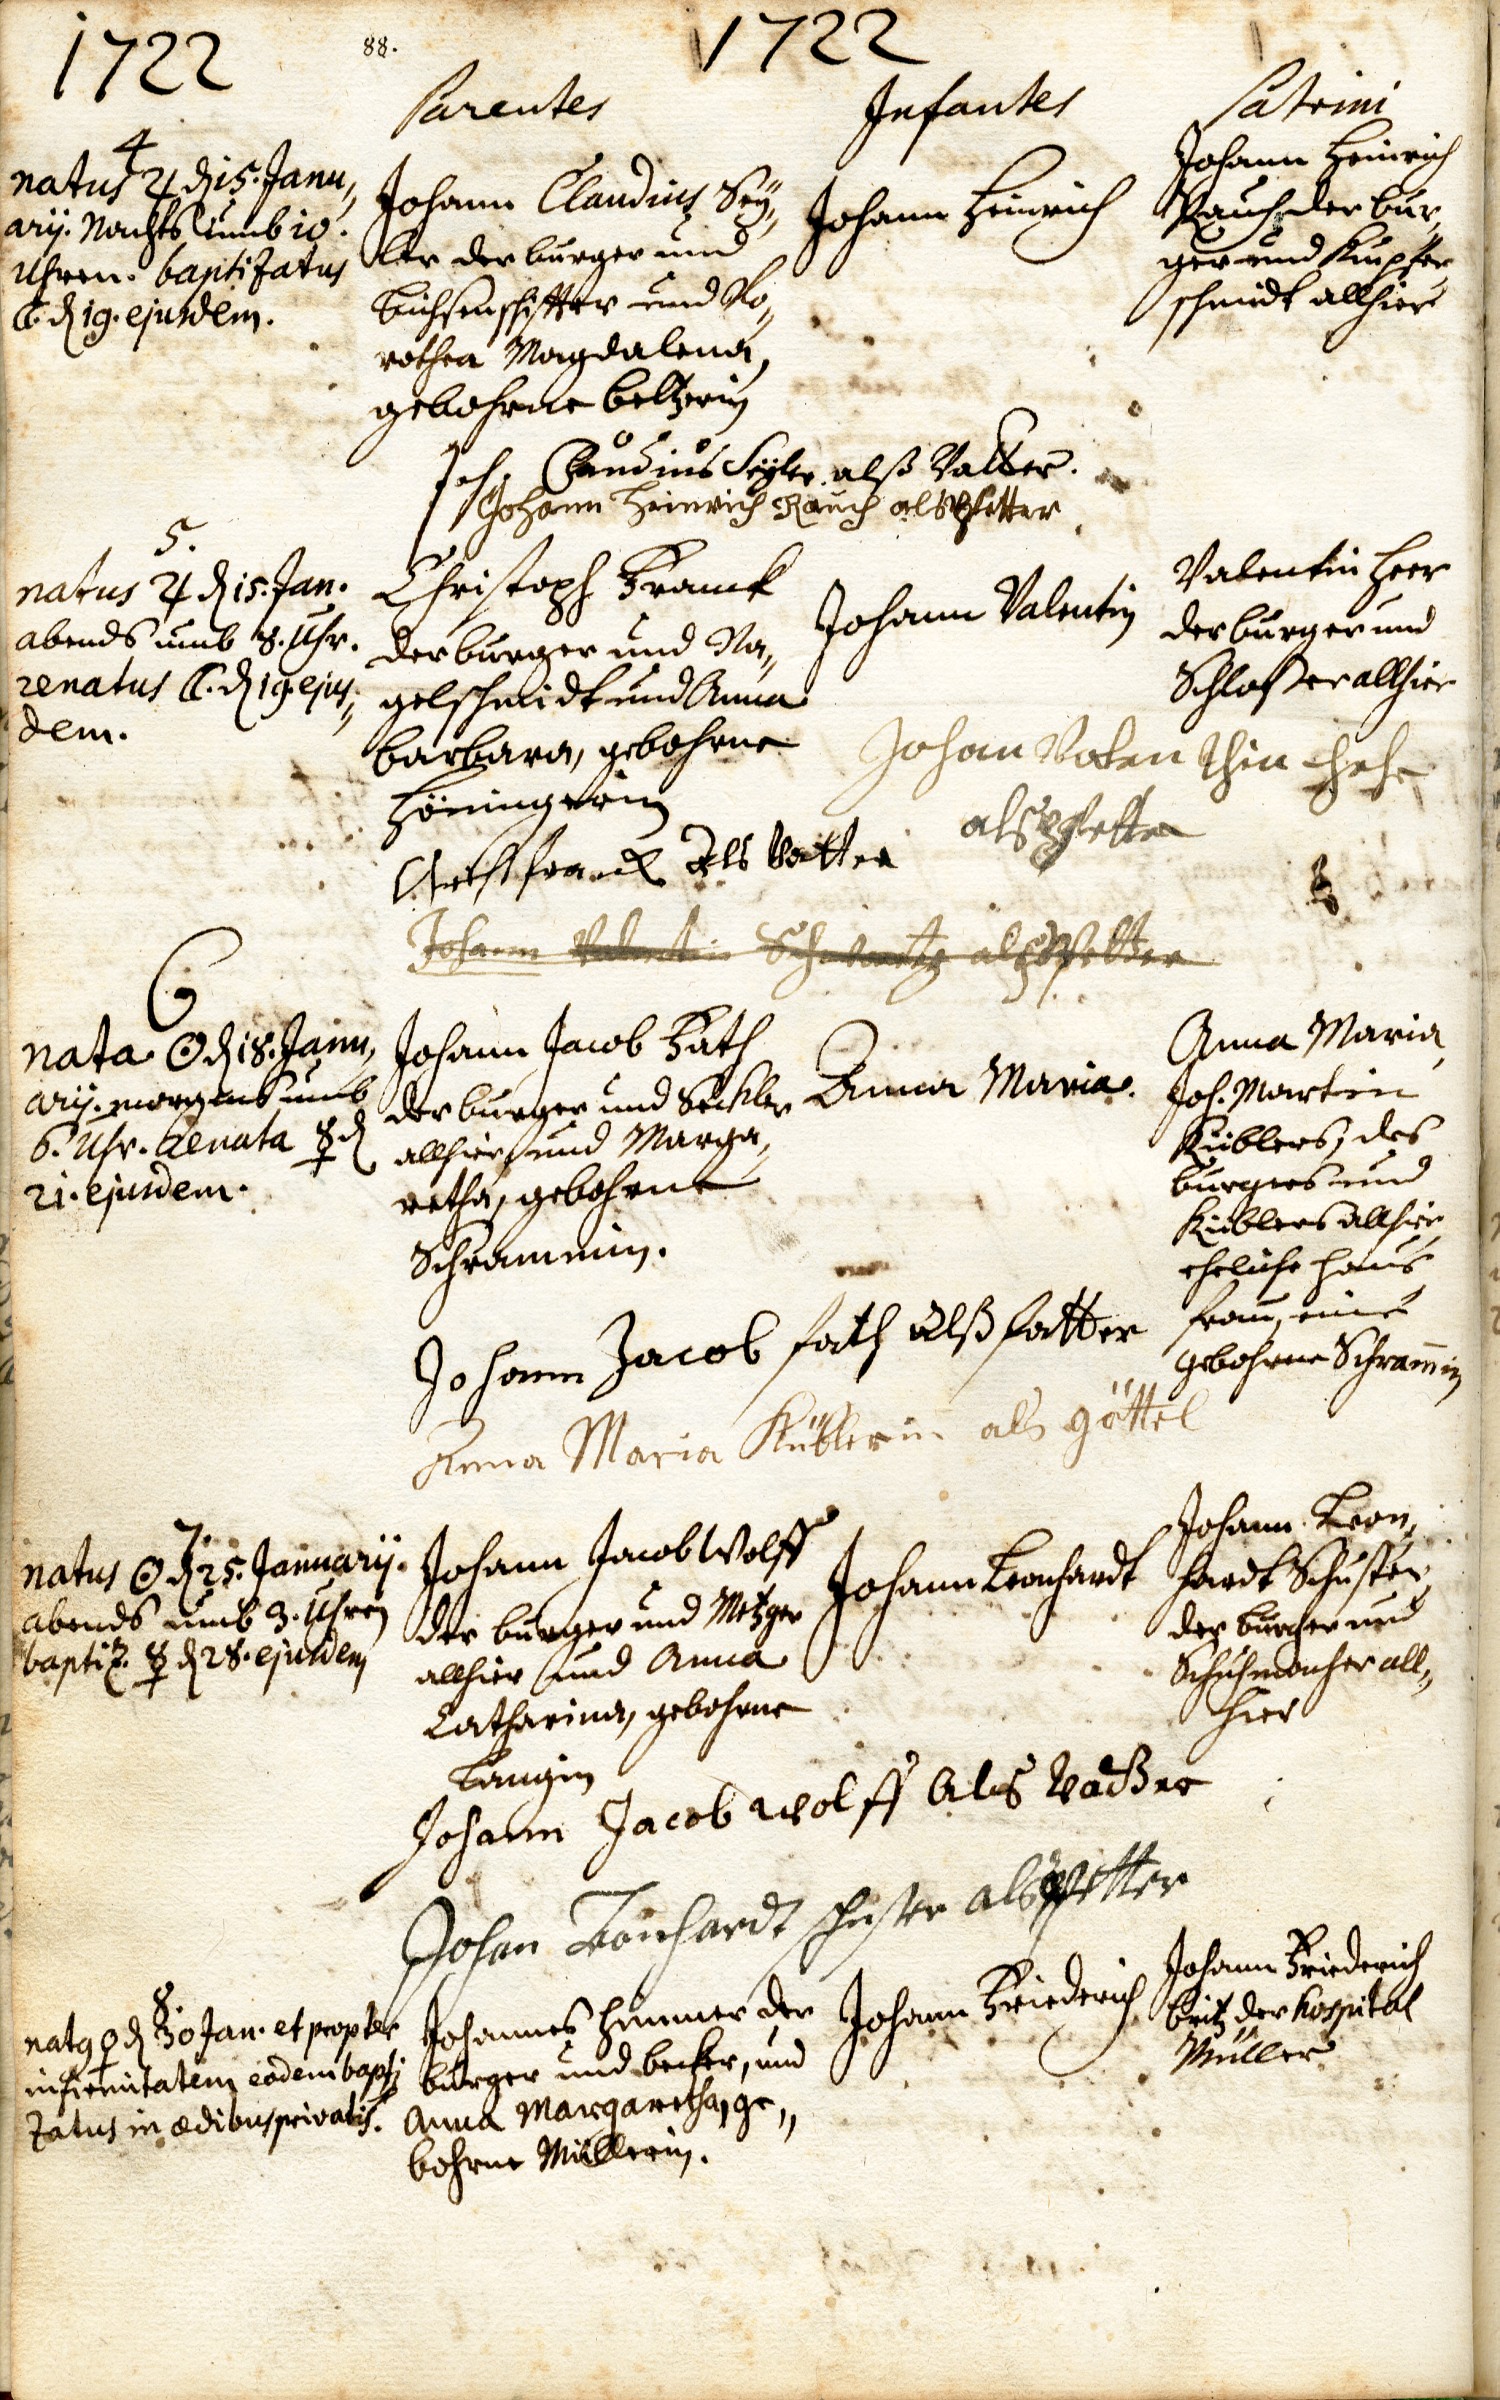 1722
88.
1722
Parentes
Infantes
Patrini
4
natus ♃ d 15. Janu„
arij. Nachts umb 10.
Uhren. baptizatus
☾. d 19. ejusdem.
Johann Claudius Sey„
ler der burger und
büchsenschiffter und Do„
rothea Magdalena,
gebohrne beltzerin
Johann Heinrich
Johann Heinrich
Rauch der bur„
ger und Kupfer
schmidt allhier
Joh. Claudius Seyler alß Vatter.
Johann Heinrich Rauch als Pfetter
5.
natus ♃ d 15. Jan.
abends umb 8. Uhr.
renatus ☾. d 19. ejus„
dem.
Christoph Franck
der burger und Na„
gelschmidt und Anna
barbara, gebohrne
Höningerin
Johann Valentin
Valentin Heer
der burger und
Schlosser allhier
Johan Valen thin
als Pfetter
franck Als Vatter
Johann Valentin alß Pfetter
6
nata ☉ d 18. Janu„
arij. morgens umb
6. Uhr. denata ☿ d
21. ejusdem.
Johann Jacob Fath
der burger und Seckler
allhier, und Marga„
retha, gebohrne
Schrammin.
Anna Maria.
Anna Maria,
Joh. Martin
Küblers, des
burgers und
Küblers allhier
eheliche Haus
frau, eine
gebohrne Schram̄in
Johann Jacob fath alß fatter
Anna Maria Küblerin als göttel
7.
natus ☉ d 25. Januarij.
abends umb 3. Uhren
baptiz. ☿ d 28. ejusdem
Johann Jacob Wolff
der burger und Metzger
allhier und Anna
Catharina, gebohrne
Langin
Johann Leonhardt
Johann Leon„
hardt Schuster
der burger und
Schuhmacher all„
hier
Johann Jacob wolff Als Vatter
Johan Leonhardt schuster als Pfetter
8.
nat9 ♀ d 30 Jan. et propter
infirmitatem eodem bapti
zatus in ædibus privatis.
Johannes Hummer der
burger und becker, und
Anna Margaretha, ge„
bohrne Müllerin.
Johann Friederich
Johann Friederich
britz der Hospital
Müller